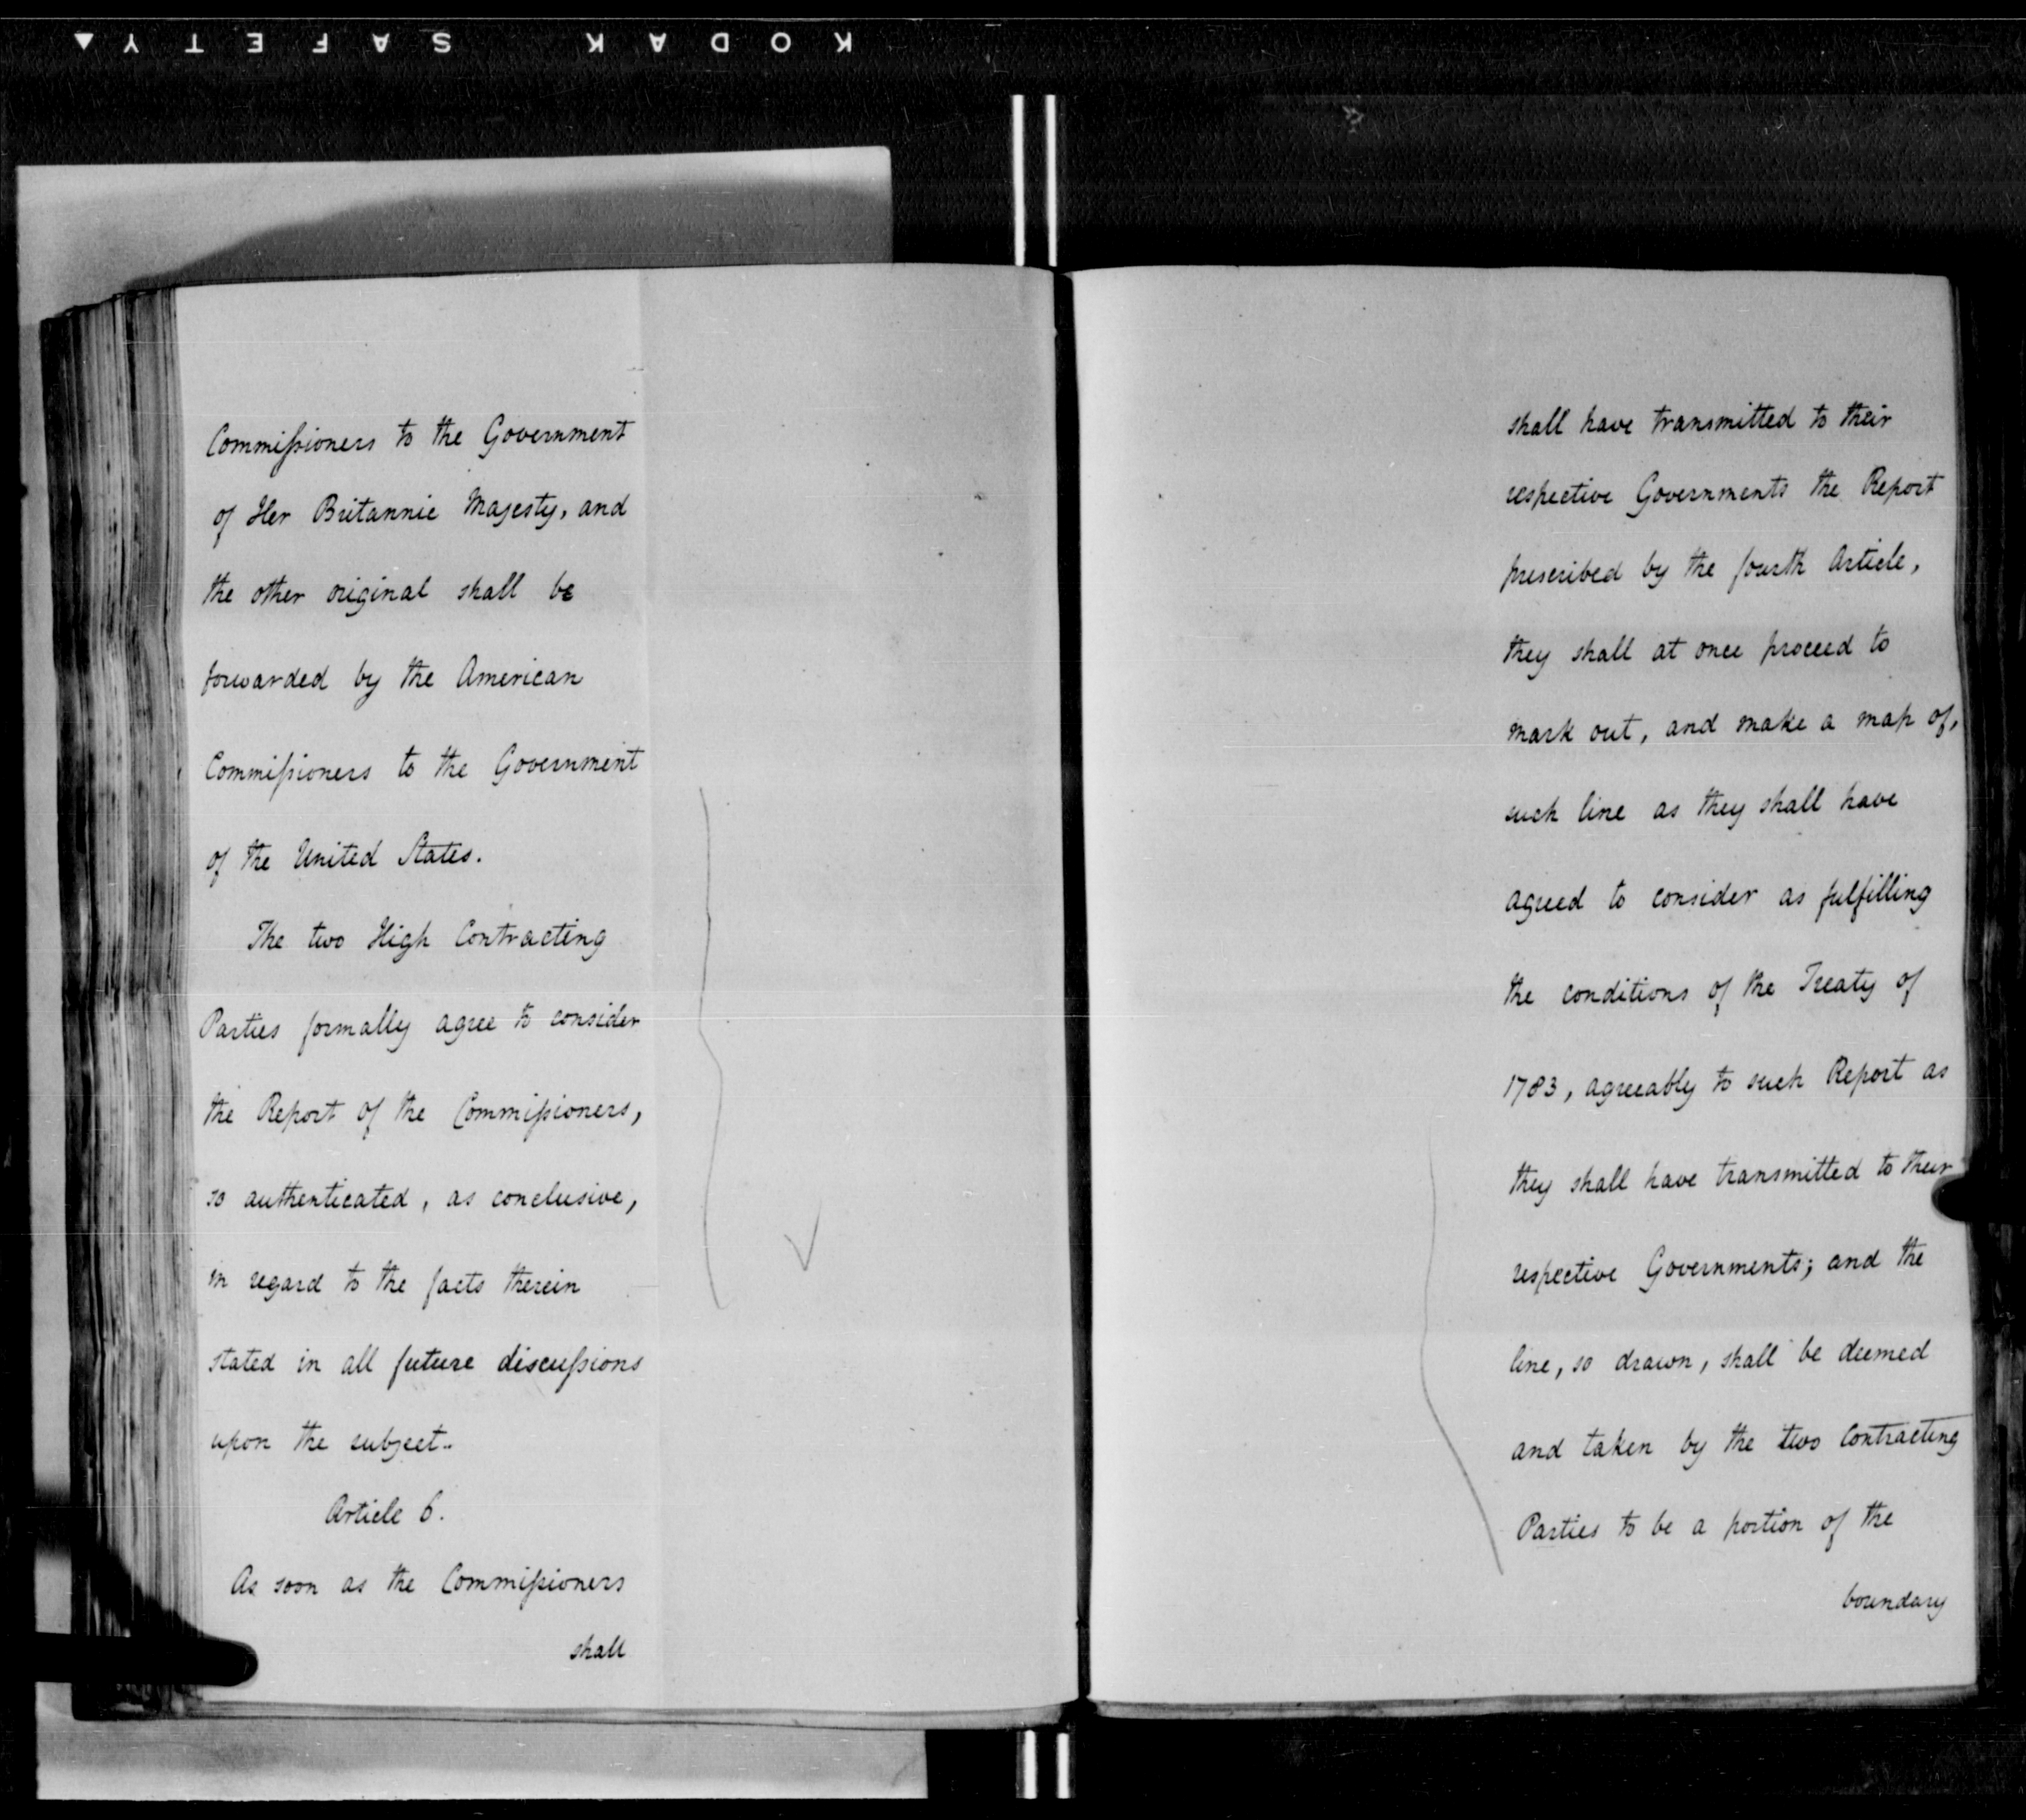 KODAK SAFETY
Commissioners to the Government
of Her Britannic Majesty, and
the other original shall be
forwarded by the American
Commissioners to the Government
of the United States.
The two High Contracting
Parties formally agree to consider
the Report of the Commissioners,
so authenticated, as conclusive,
in regard to the facts therein
stated in all future discussions
upon the subject..
Article 6.
As soon as the Commissioners
shall
shall have transmitted to their
respective Governments the Report
prescribed by the fourth Article,
they shall at once proceed to
mark out, and make a map of,
such line as they shall have
agreed to consider as fulfilling
the conditions of the Treaty of
1783, agreeably to such Report as
they shall have transmitted to their
respective Governments; and the
line, so drawn, shall be deemed
and taken by the two Contracting
Parties to be a portion of the
boundary